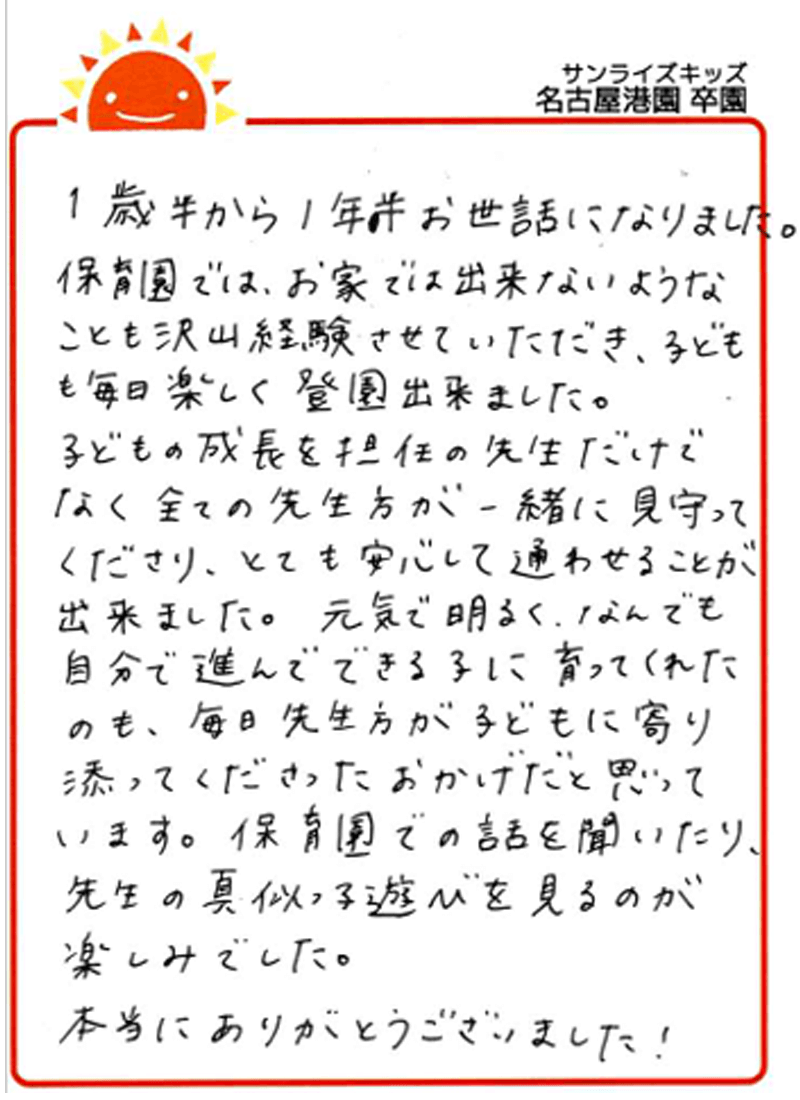 サンライズキッズ
名古屋港園 卒園
1歳半から1年半お世話になりました。
保育園では、お家では出来ないような
ことも沢山経験させていただき、子ども
も毎日楽しく登園出来ました。
子どもの成長を担任の先生だけで
なく全ての先生方が一緒に見守って
くださり、とても安心して通わせることが
出来ました。元気で明るく、なんでも
自分で進んでできる子に育ってくれた
のも、毎日先生方が子どもに寄り
添ってくださったおかげだと思って
います。保育園での話を聞いたり、
先生の真似っ子遊びを見るのが
楽しみでした。
本当にありがとうございました!